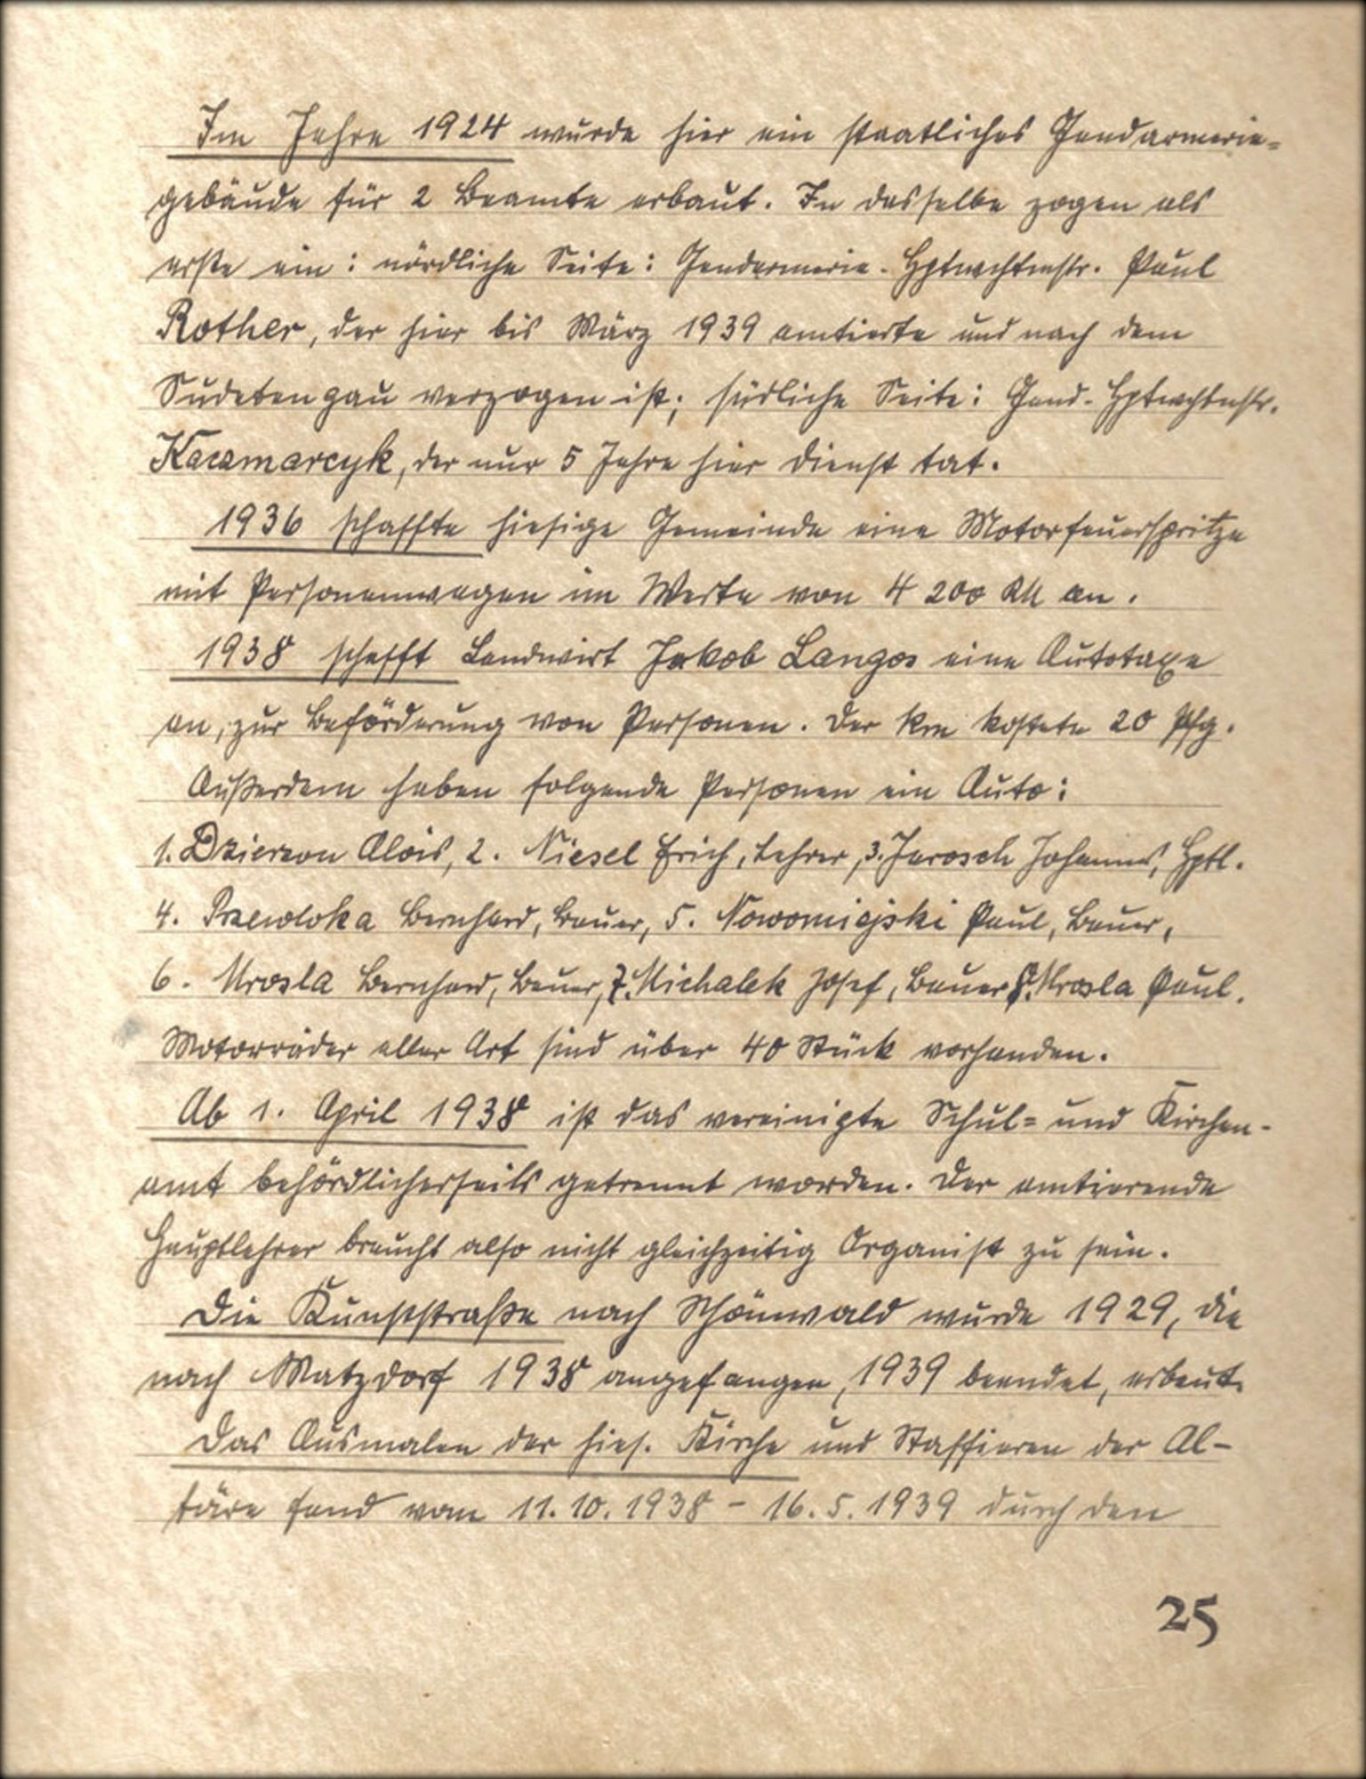 Im Jahre 1924 wurde hier ein staatliches Gendarmerie=
gebäude für 2 Beamte erbaut. In dasselbe zogen als
erste ein: nördliche Seite: Gendarmerie-Hptwchtmstr. Paul
Rother, der hier bis März 1939 amtierte und nach dem
Sudetengau verzogen ist; südliche Seite: Gend-Hptwchtmstr.
Kaczmarcyk, der nur 5 Jahre hier Dienst tat.
1936 schaffte hiesige Gemeinde eine Motorfeuerspritze
mit Personenwagen im Werte von 4 200 RM an.
1938 schafft Landwirt Jakob Langos eine Autotaxe
an, zur Beförderung von Personen. Der km kostete 20 Pfg.
Außerdem haben folgende Personen ein Auto:
1. Dzierzon Alois, 2. Niesel Erich, Lehrer, 3. Jarosch Johannes, Hptl.
4. Przewloka Bernhard, Bauer, 5. Nowomiejski Paul, Bauer,
6. Mrosla Bernhard, Bauer, 7. Michalek Josef, Bauer 8. Mrosla Paul.
Motorräder aller Art sind über 40 Stück vorhanden.
Ab 1. April 1938 ist das vereinigte Schul= und Kirchen-
amt behördlicherseits getrennt worden. Der amtierende
Hauptlehrer braucht also nicht gleichzeitig Organist zu sein.
Die Kunststraße nach Schönwald wurde 1929, die
nach Matzdorf 1938 angefangen, 1939 beendet, erbaut.
Das Ausmalen der hies. Kirche und Staffieren der Al-
täre fand vom 11.10.1938 - 16.5.1939 durch den
25